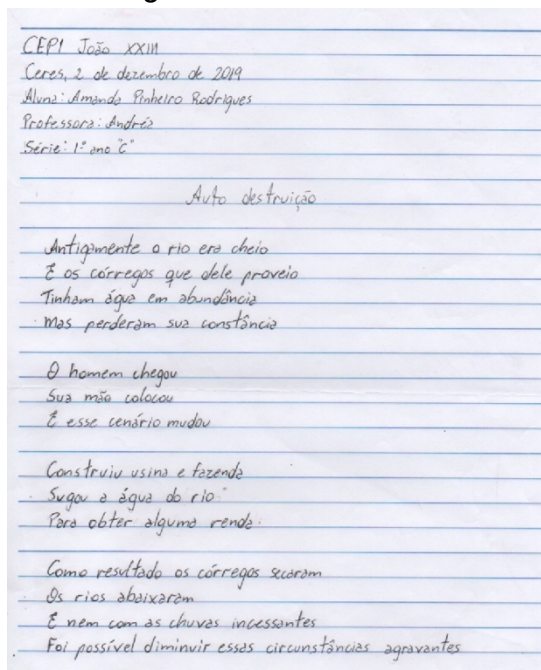 CEPI João XXIII
Ceres, 2 de dezembro de 2019
Aluna: Amanda Pinheiro Rodrigues
Professora: Andréa
Série: 1º ano "C"
Auto destruição
Antigamente o rio era cheio
E os córregos que dele proveio
Tinham água em abundância
Mas perderam sua constância
O homem chegou
Sua mão colocou
E esse cenário mudou
Construiu usina e fazenda
Sugou a água do rio
Para obter alguma renda.
Como resultado os córregos secaram
Os rios abaixaram
E nem com as chuvas incessantes
Foi possível diminuir essas circunstâncias agravantes